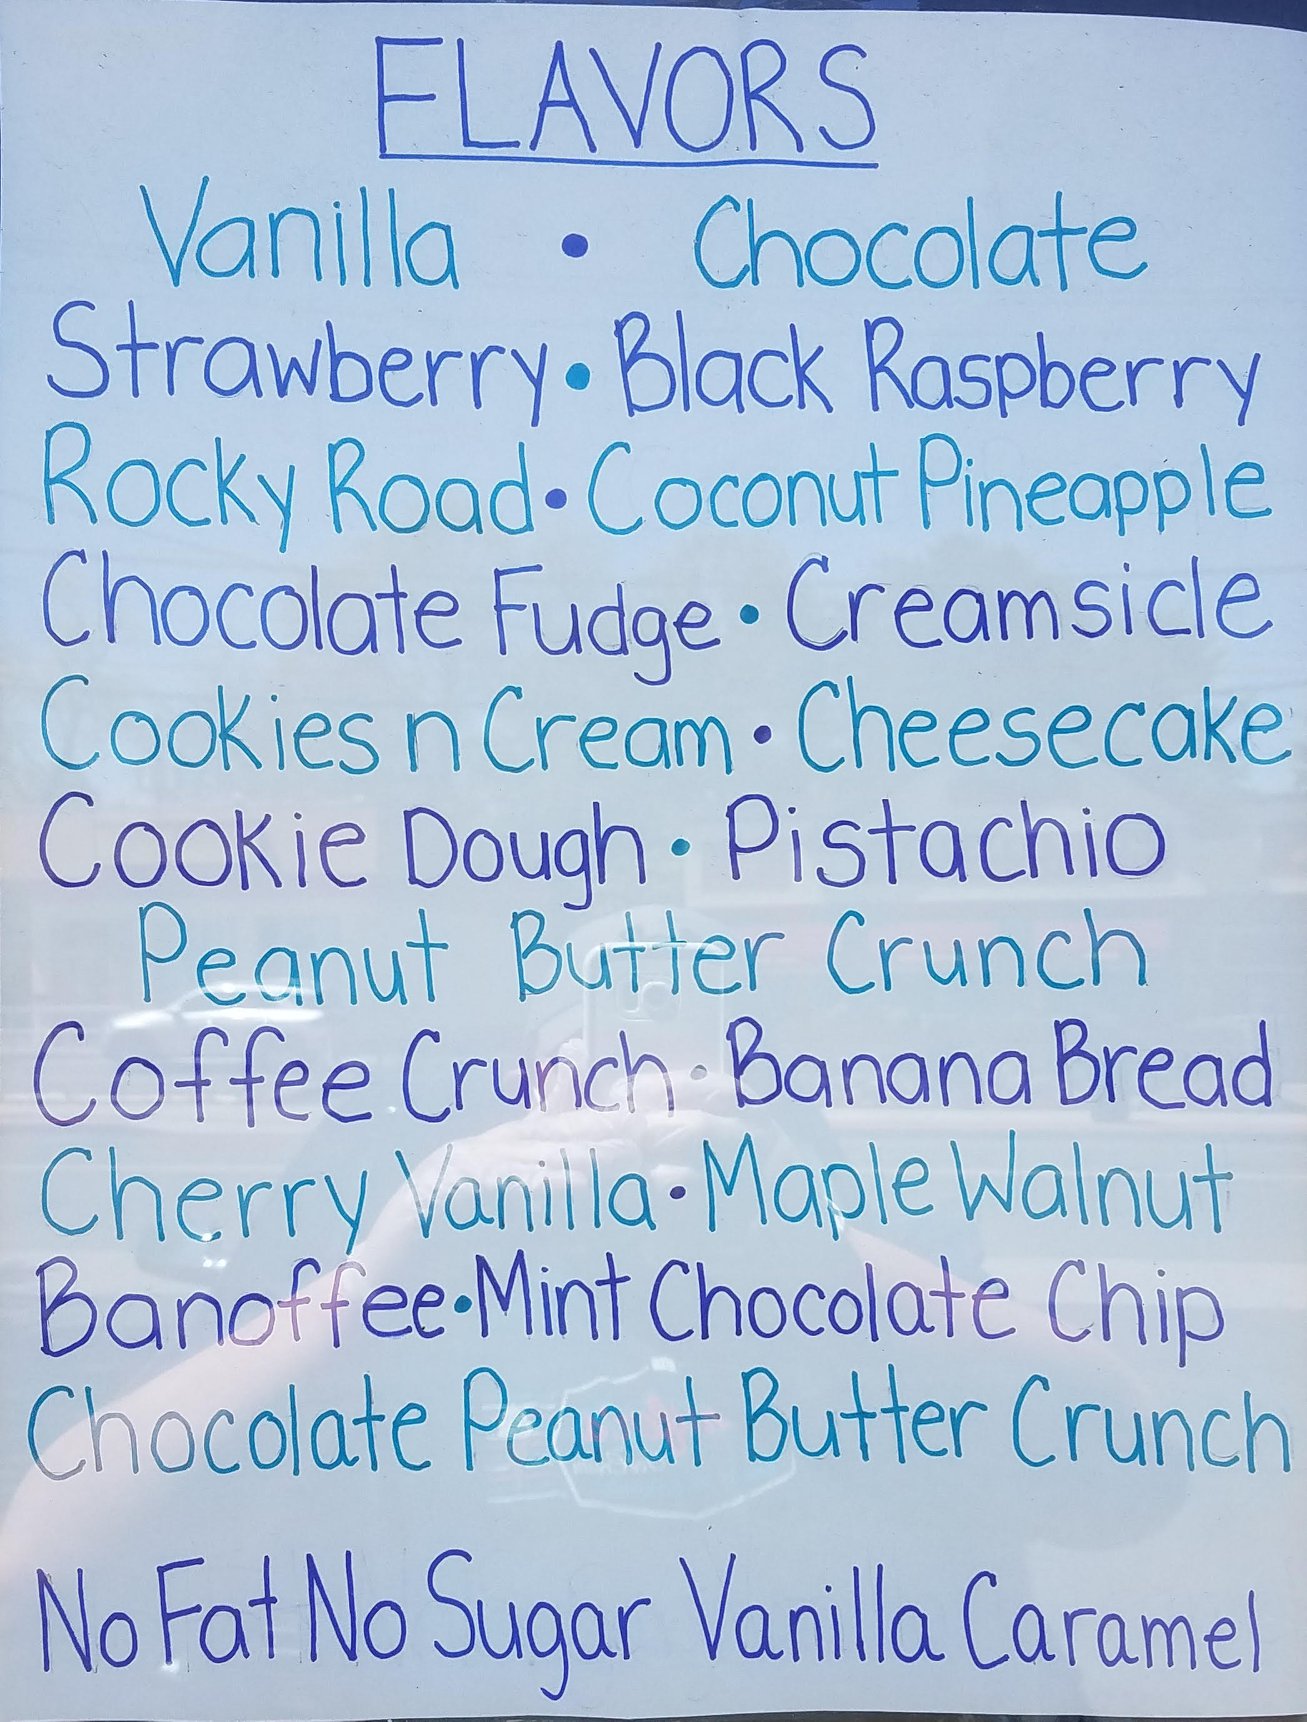 FLAVORS
Vanilla • Chocolate
Strawberry • Black Raspberry
Rocky Road • Coconut Pineapple
Chocolate Fudge • Creamsicle
Cookies n Cream • Cheesecake
Cookie Dough • Pistachio
Peanut Butter Crunch
Coffee Crunch • Banana Bread
Cherry Vanilla • Maple Walnut
Banoffee • Mint Chocolate Chip
Chocolate Peanut Butter Crunch
No Fat No Sugar Vanilla Caramel